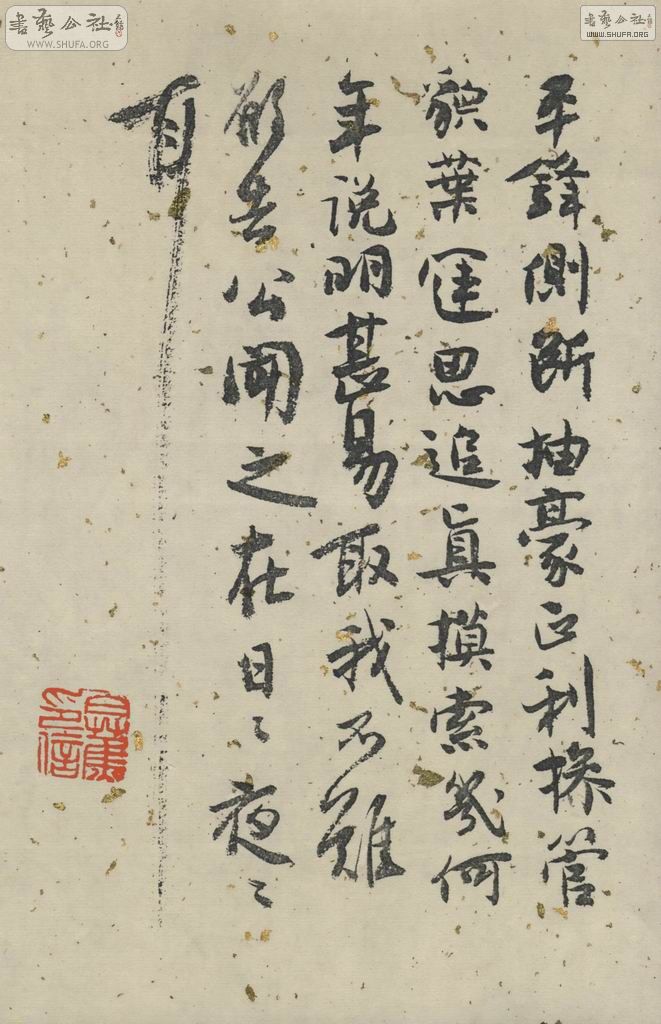 書藝公社
WWW.SHUFA.ORG
書藝公社
WWW.SHUFA.ORG
平鋒側斫抽豪正利操管
葉匡思追真摸索幾何
年说明甚易取我不難
欲告公開之在日〻夜〻